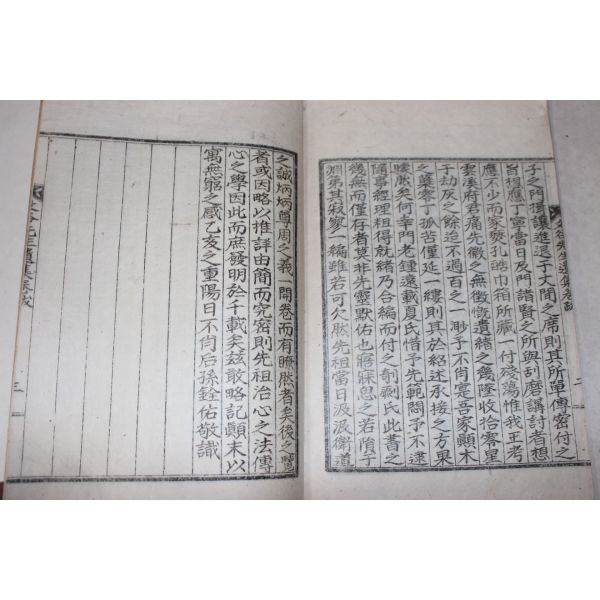 子之門摳讓進退于丈間之席則其所單傳密付之
旨想應丁寧當日及門諸賢之所與刮磨講討者想
應不少而家燹孔皓巾箱所藏一付殘蕩惟我王考
雲溪府君痛先徽之無徵慨遺緒之幾墜收拾零星
于劫灰之餘迨不過百之一眇予不肖寔吾家顚木
之蘖零丁孤苦僅延一縷則其於紹述承接之方果
䁱䁱然矣何幸門老鍾遠載夏氏惜予先範悶予不逮
隨事經理俎得就緒乃合編而付之剞劂氏此書之
幾無而僅存者莫非先靈默佑也寤寐思之若隕于
淵第其寂寥一編雖若可欠然先祖當日汲汲衛道
之誠炳炳尊周之義一開卷而有瞭然者矣後之覽
者或因略以推詳由簡而究密則先祖治心之法傳
心之學因此而庶發明於千載矣玆敢略記顚末以
寓無窮之感乙亥之重陽日不肖后孫銓佑敬識
谷先生遺集卷跋
二
谷先生遺集卷跋
三